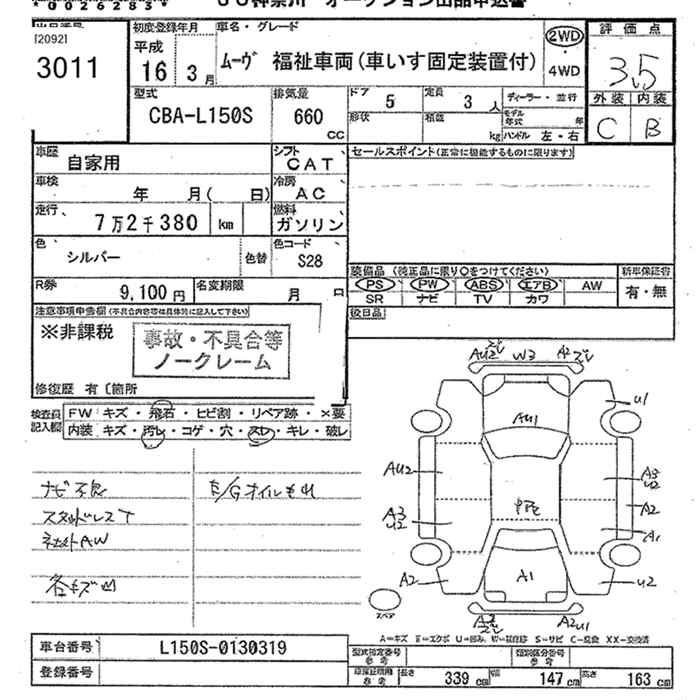 10026285
JU神奈川 オークション出品申込書
出品番号
[2092]
3011
初度登録年月
平成
16年3月
車名・グレード
ムーヴ 福祉車両(車いす固定装置付)
2WD
4WD
評価点
3.5
外装 内装
C B
型式
CBA-L150S
排気量
660
CC
ドア
5
定員
3人
ディーラー・並行
形状
積載
kg
モデル年式 年
ハンドル 左・右
車歴
自家用
シフト
CAT
車検
年 月( 日)
冷房
AC
走行
7万2千380 km
燃料
ガソリン
色
シルバー
色替
色コード
S28
R券
9,100円
名変期限
月 日
セールスポイント(正常に機能するものに限ります)
装備品(純正品に限り○をつけてください)
新車保証書
PS PW ABS エアB AW
有・無
SR ナビ TV カワ
後日品
注意事項申告欄(不具合内容等は具体的に記入して下さい)
※非課税
事故・不具合等
ノークレーム
修復歴 有〔箇所
検査員記入欄
FW キズ・飛石・ヒビ割・リペア跡・×要
内装 キズ・汚レ・コゲ・穴・スレ・キレ・破レ
ナビ不良
E/Gオイルもれ
スタッドレスT
社外AW
各キズ凹
AU2 W3 A2
U1
AU1
AU2
A3
U2
A2
A3
U2
A1
A2
A1
U2
A2 A2U1
スペア
A=キズ E=エクボ U=凹み W=波打跡 S=サビ C=腐食 XX=交換済
車台番号
L150S-0130319
登録番号
型式指定番号
参考
類別区分番号
参考
車庫証明用
参考
長さ 339cm 幅 147cm 高さ 163cm